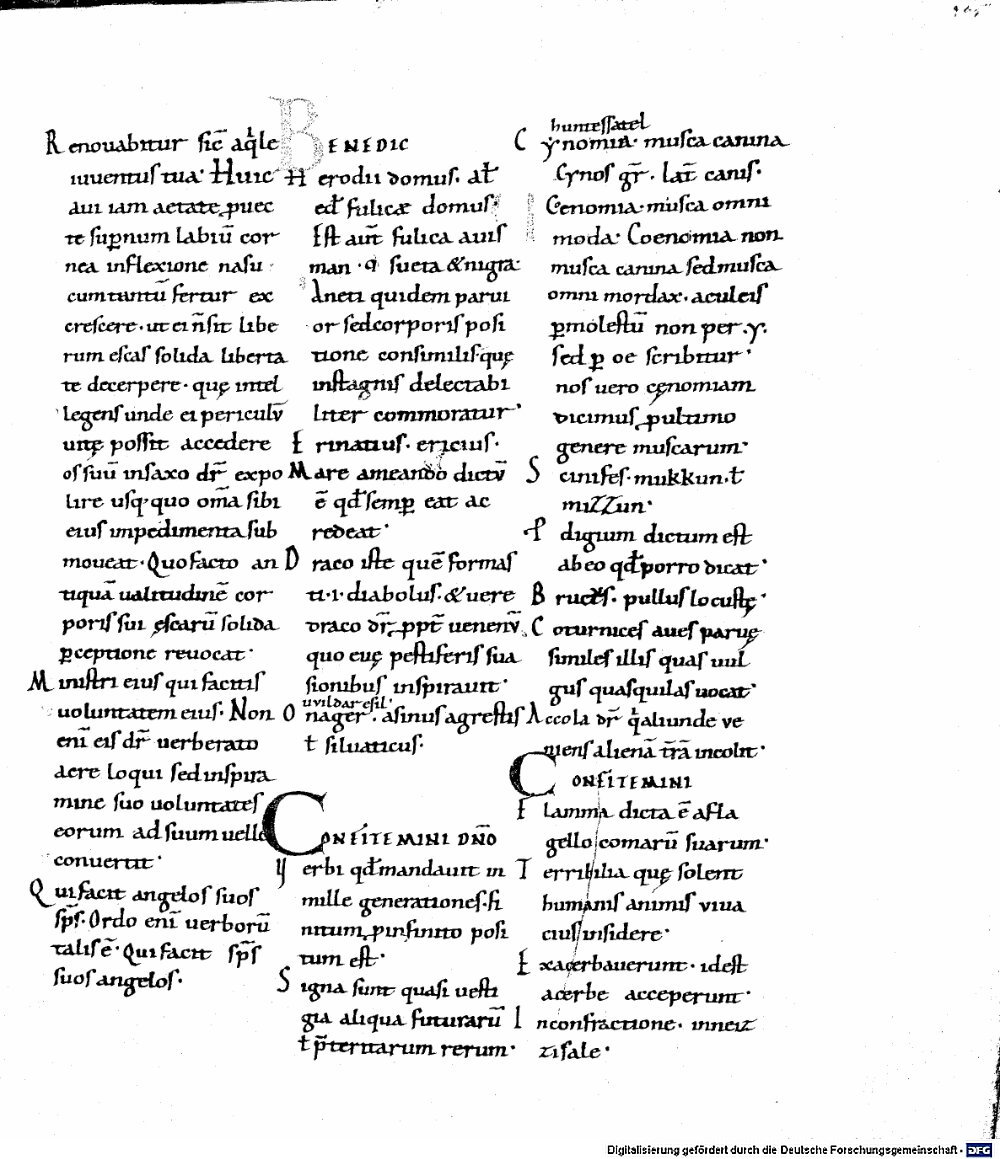 Renouabitur sic̄ aq̇le
iuuentus tua· Huic
aui iam aetate puec
te sup̱num labiū cor
nea inflexione nasu·
cum tantū fertur ex
crescere· ut ei n̄ sit libe
rum escas solida liberta
te decerpere· quę intel
legens unde ei periculū
uitę possit accedere
os suū in saxo dr̄ expo
lire usq· quo om̄a sibi
eius impedimenta sub
moueat· Quo facto an
tiquā ualitudinē cor
poris sui escarū solida
p̱ceptione reuocat·
Ministri eius qui facitis
uoluntatem eius· Non
enī eis dr̄ uerberato
aere loqui sed inspira
mine suo uoluntates
eorum ad suum uelle
conuertit·
Qui facit angelos suos
sp̄s· Ordo enī uerborū
talis ē· Qui facit sp̄s
suos angelos·
BENEDIC
Herodii domus· at̄
ed̄ fulicæ domus·
Est aut̄ fulica auis
man·q sueta & nigra·
Aneti quidem parui
or sed corporis posi
tione consimilis quę
instagnis delectabi
liter commoratur·
Erinatius· ericius·
Mare ameando dictū
ē qd̄ semp̱ eat ac
redeat·
Draco iste quē formas
ti·i·diabolus· & uere
draco dr̄ ppt̄ uenenū
quo euę pestiferis sua
sionibus inspirauit·
uvildaresil·
Onager· asinus agrestis
ł siluaticus·
CONFITEMINI DN̄O
Verbi qd̄ mandauit in
mille generationes· fi
nitum pinfinito posi
tum est·
Signa sunt quasi uesti
gia aliqua futurarū
ł p̄teritarum rerum·
huntessatel
Cẏnomia· musca canina
Cynos gr̄· lat̄ canis·
Cenomia· musca omni
moda· Coenomia non
musca canina sed musca
omni mordax· aculeis
p̱molestū non per·y·
sed p̱ oe scribitur·
nos uero cęnomiam
dicimus pultimo
genere muscarum·
Scinifes· mukkun·ł
mizzun·
Pdigium dictum est
ab eo qd̄ porro dicat·
Bruchs· pullus locustę·
Coturnices aues paruę
similes illis quas uul
gus quasquilas uocat·
Accola dr̄ q̇ aliunde ve
niens alienā tr̄ā incolit·
CONFITEMINI
Flamma dicta ē afla
gello comarū suarum·
Terribilia quę solent
humanis animis viua
cius insidere·
Exacerbauerunt· idest
acerbe acceperunt·
Inconfractione· inneiz
zisale·
Digitalisierung gefördert durch die Deutsche Forschungsgemeinschaft - DFG